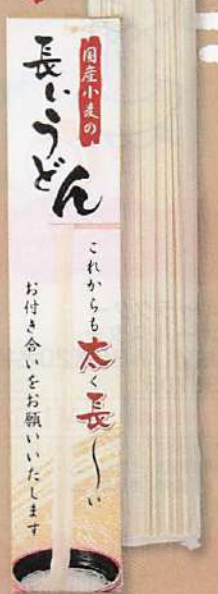 国産小麦の
長いうどん
これからも太く長〜い
お付き合いをお願いいたします